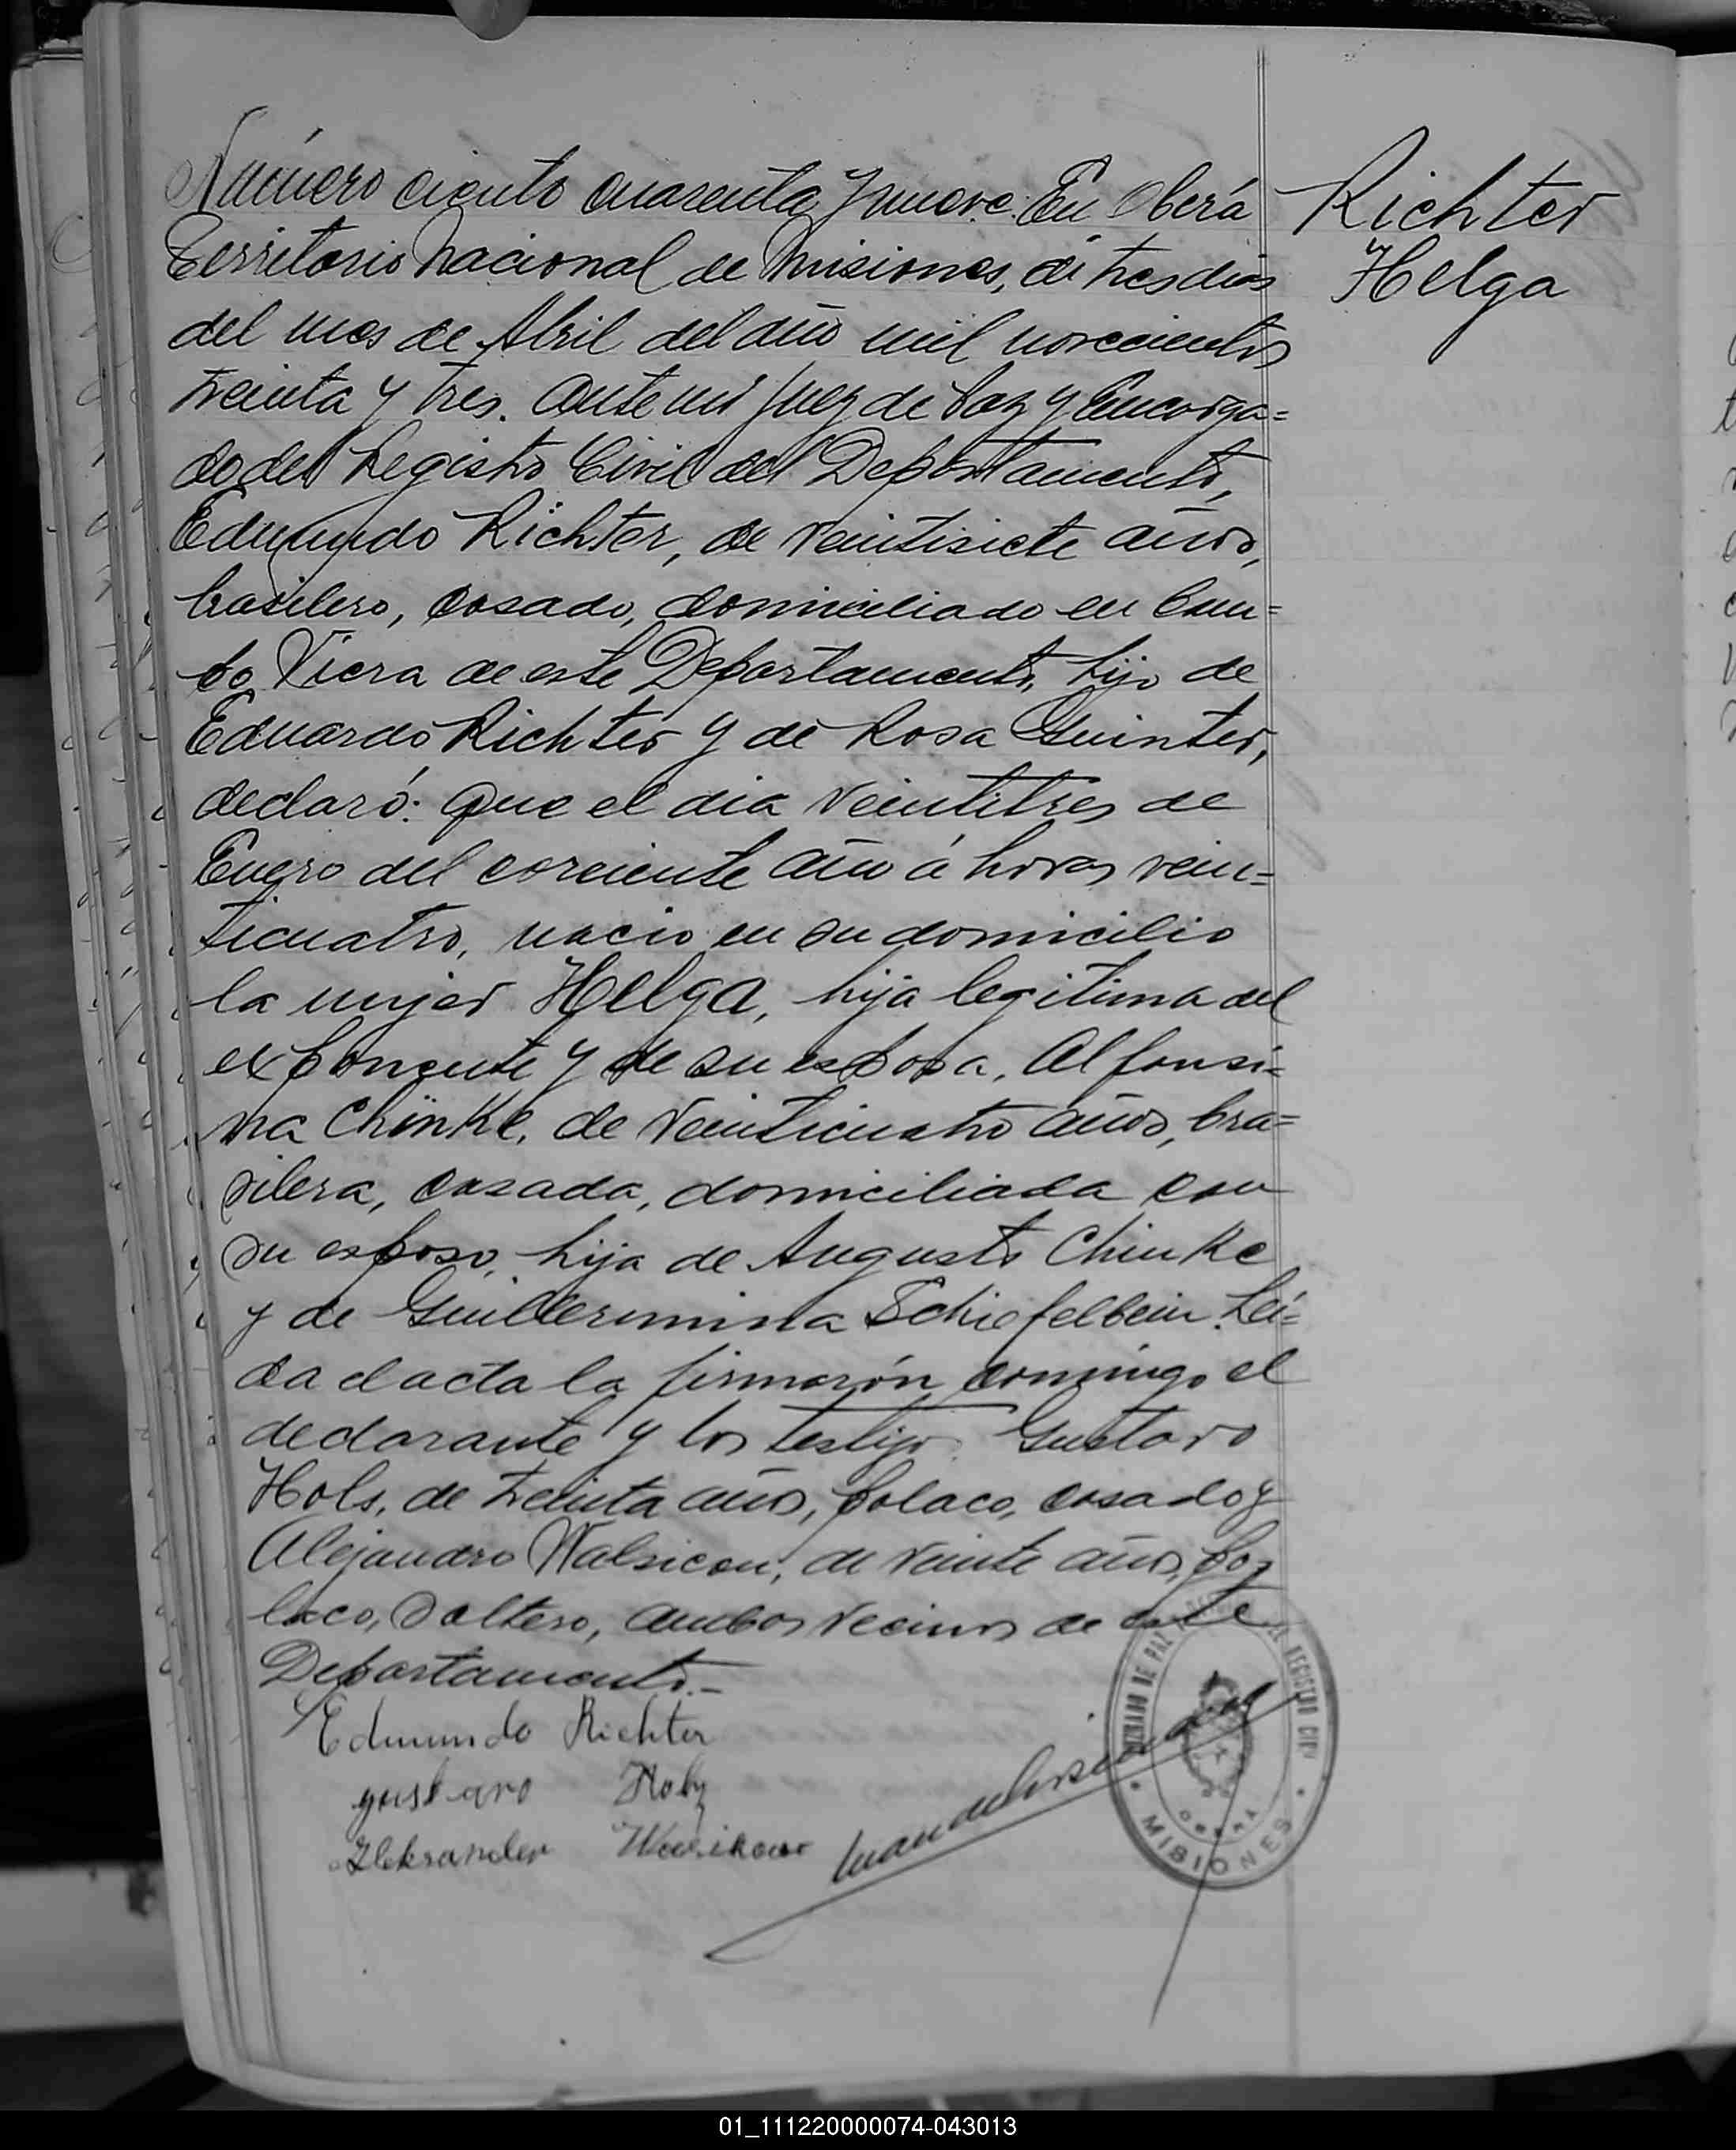 Número ciento cuarenta y nueve. En Oberá
Territorio Nacional de Misiones, á tres dias
del mes de Abril del año mil novecientos
treinta y tres. Ante mi Juez de Paz y Encarga=
do del Registro Civil del Departamento,
Edmundo Richter, de veintisiete años,
brasilero, casado, domiciliado en Cam=
po Viera de este Departamento, hijo de
Eduardo Richter y de Rosa Guinter,
declaró: Que el dia veintitres de
Enero del corriente año á horas vein=
ticuatro, nació en su domicilio
la mujer Helga, hija legitima del
exponente y de su esposa, Alfonsi=
na Chinke, de veinticuatro años, bra=
silera, casada, domiciliada con
su esposo, hija de Augusto Chinke
y de Guillermina Schiefelbein. Lei=
da el acta la firmarón conmigo el
declarante y los testigos Gustavo
Hols, de treinta años, polaco, casado y
Alejandro Walsicon, de veinte años, po=
laco, soltero, ambos vecinos de este
Departamento.-
Edmundo Richter
gustavo Holz
Aleksander
Richter
Helga
JUZGADO DE PAZ
REGISTRO CIVIL
OBERÁ
MISIONES
01_111220000074-043013